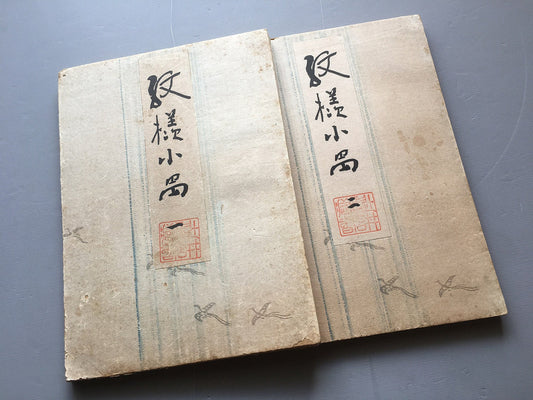 紋様小品
一
紋様小品
二